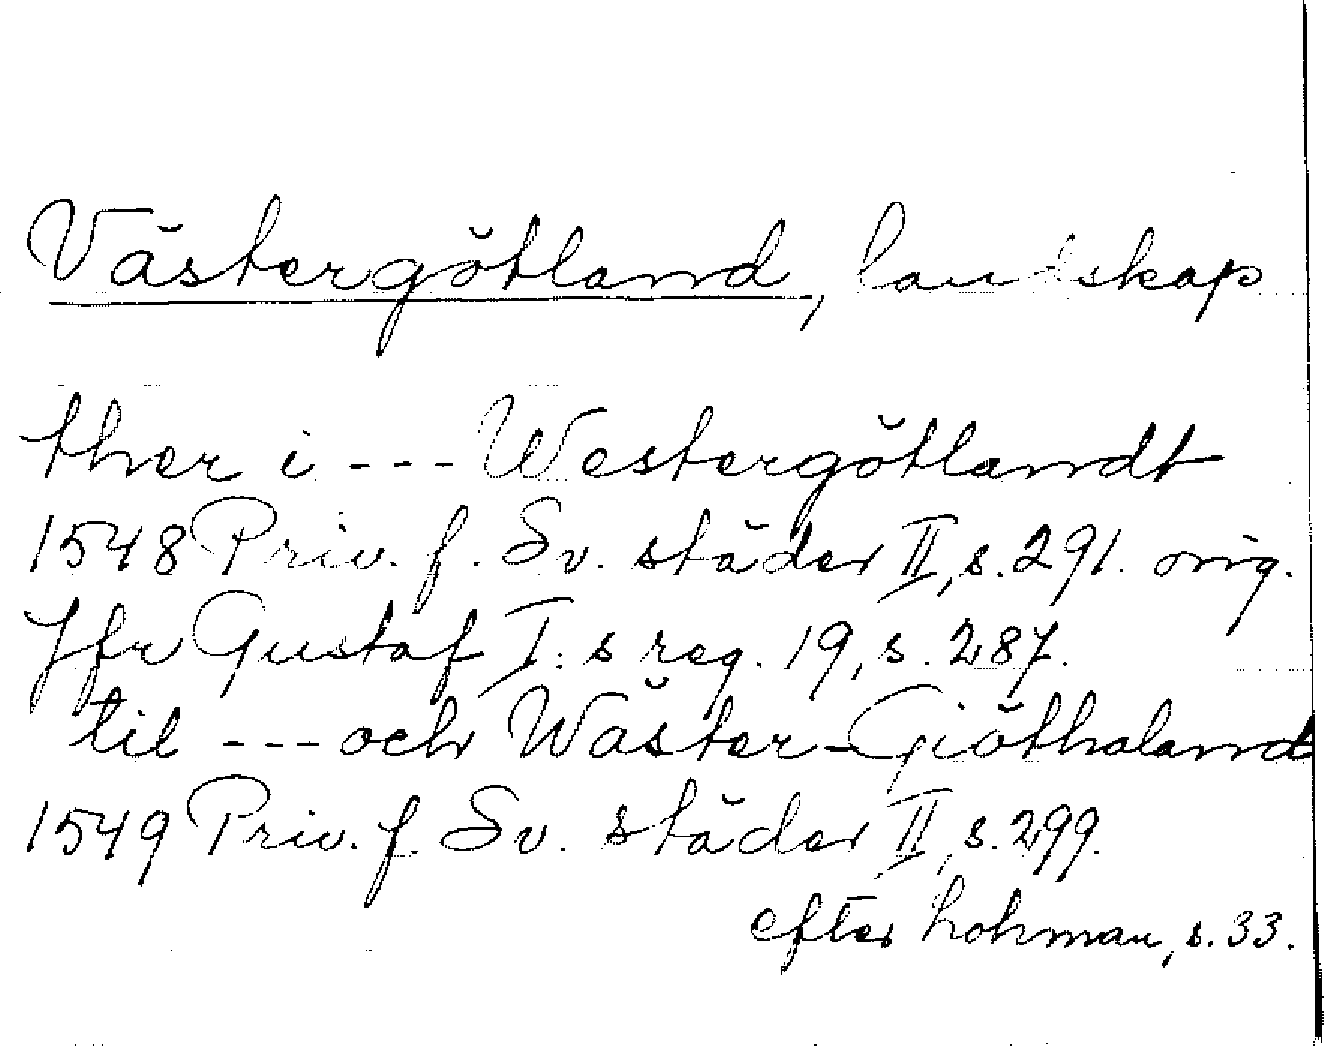 Västergötland, landskap
ther i --- Westergötlandt
1548 Priv. f. Sv. städer II, s. 291. orig.
Jfr Gustaf I:s reg. 19, s. 287.
til --- och Wäster-Giöthaland
1549 Priv. f Sv. städer II, s. 299.
efter Lohman, s. 33.